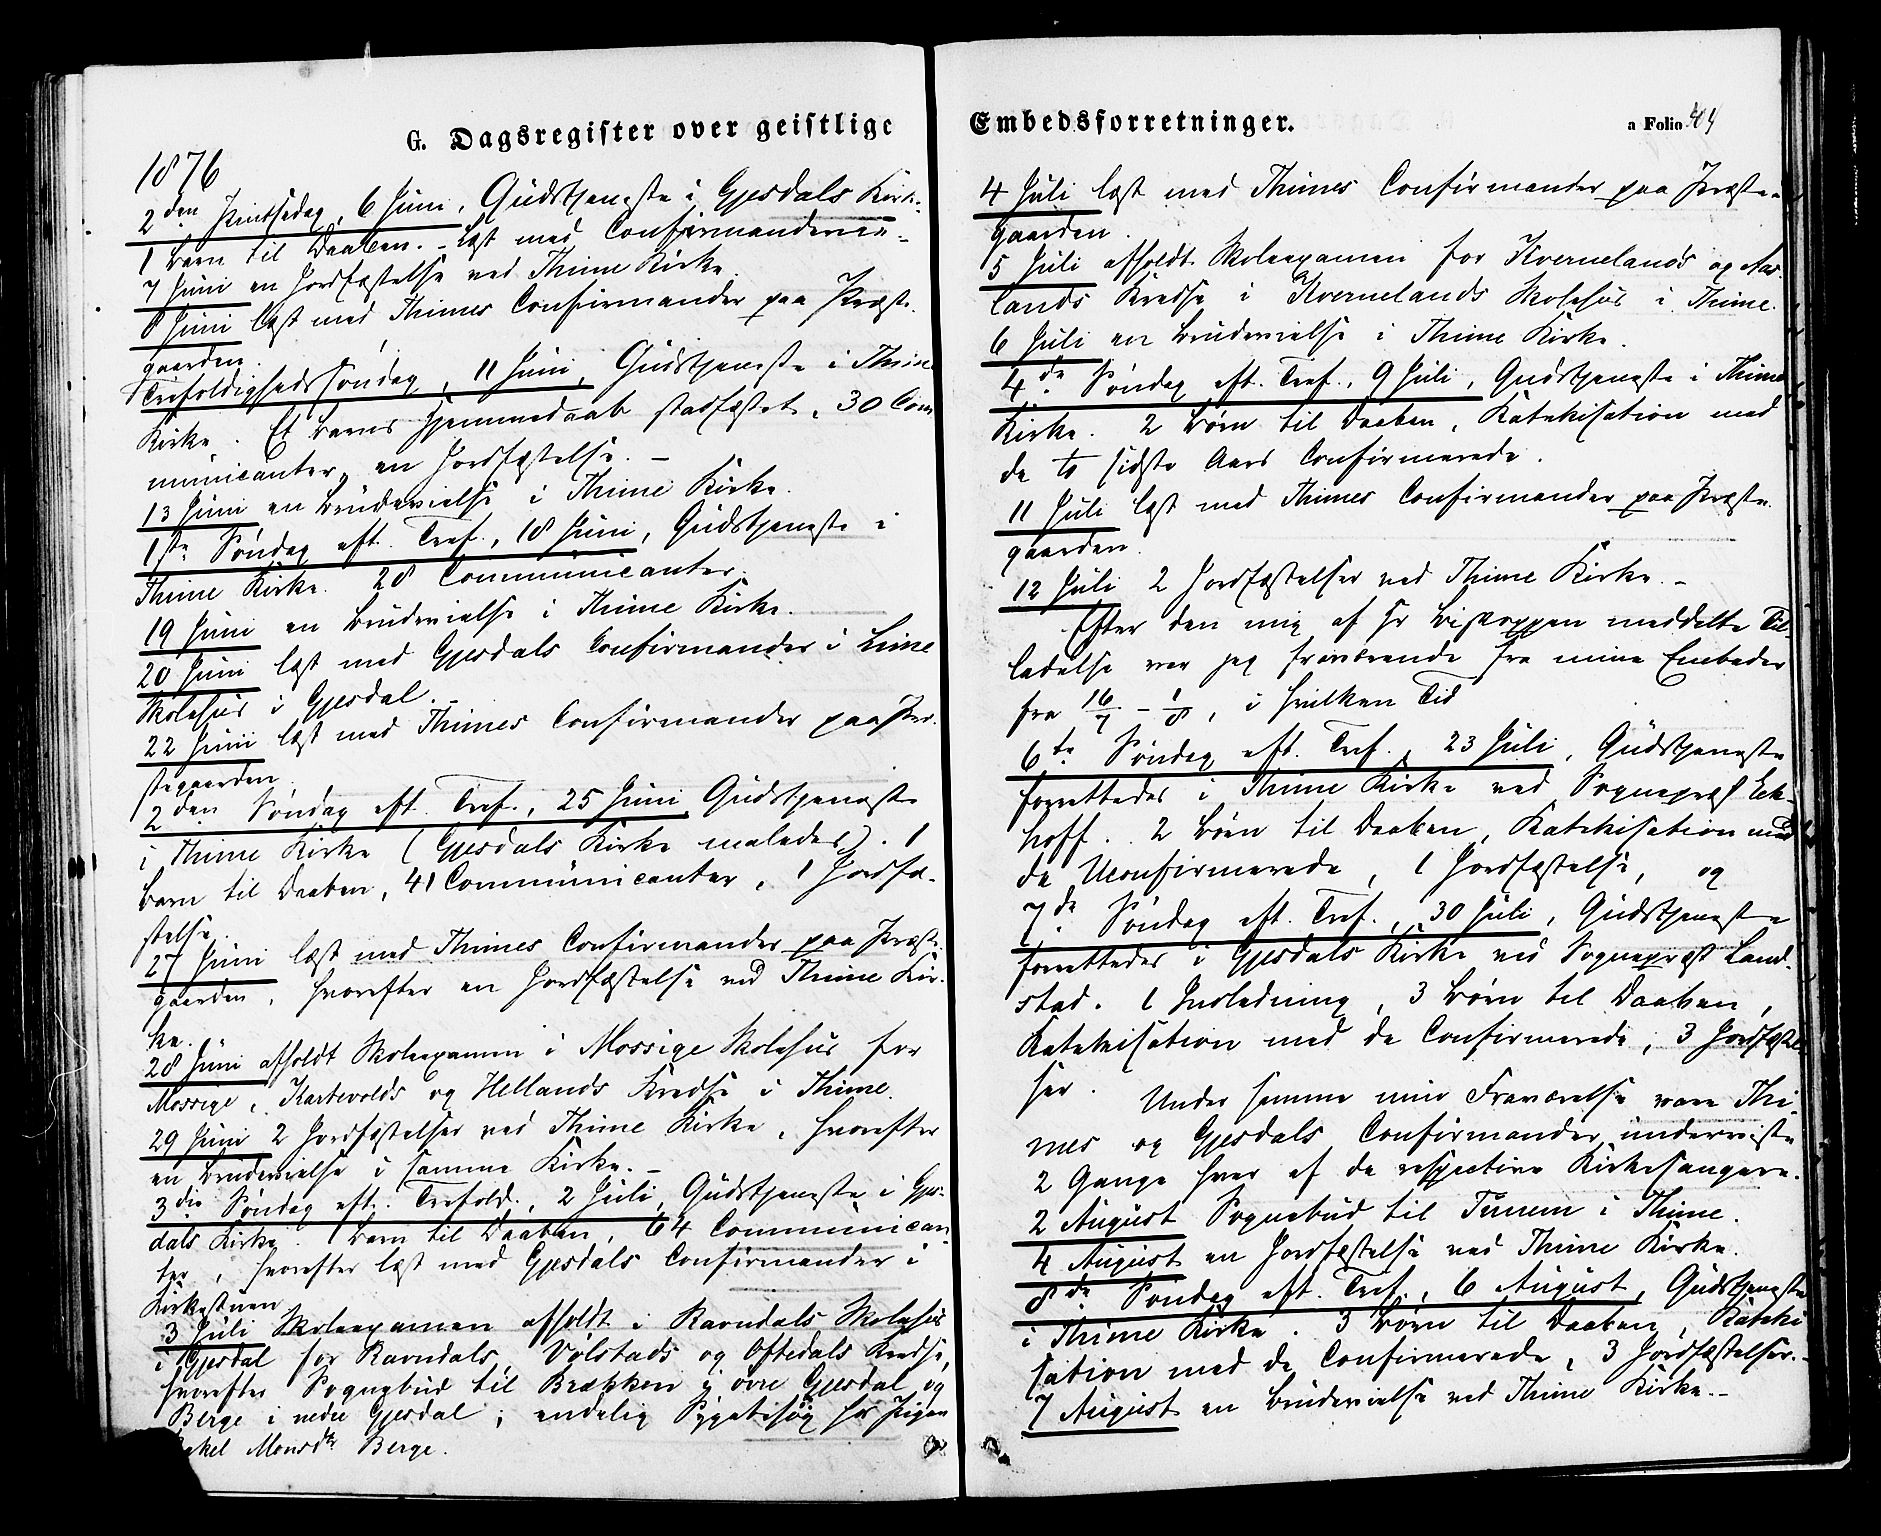 G. Dagsregister over geistlige
1876
2den Pintsedag, 6 Juni, Gudstjeneste i Gjesdals Kirke.
1 Barn til Daaben. Læst med Confirmanderne.
7 Juni en Jordfæstelse ved Thime Kirke.
8 Juni læst med Thimes Confirmander paa Præste-
gaarden.
Trefoldighedssøndag, 11 Juni, Gudstjeneste i Thime
Kirke. Et Barns Hjemmedaab stadfæstet, 30 Com
municanter, en Jordfæstelse. –
13 Juni en Brudevielse i Thime Kirke.
1ste Søndag eft. Tref., 18 Juni, Gudstjeneste i
Thime Kirke. 28 Communicanter.
19 Juni en Brudevielse i Thime Kirke.
20 Juni læst med Gjesdals Confirmander i Lime
Skolehus i Gjesdal.
22 Juni læst med Thimes Confirmander paa Præ-
stegaarden.
2den Søndag eft. Tref., 25 Juni, Gudstjeneste
i Thime Kirke (Gjesdals Kirke malades). 1
Barn til Daaben, 41 Communicanter, 1 Jordfæ-
stelse.
27 Juni læst med Thimes Confirmander paa Præste
gaarden, hvorefter en Jordfæstelse ved Thime Kir-
ke.
28 Juni afholdt Skoleexamen i Mossige Skolehus for
Mossige, Kartevolds og Hellands Kredse i Thime.
29 Juni 2 Jordfæstelser ved Thime Kirke, hvorefter
en Brudevielse i samme Kirke. –
3die Søndag eft. Trefold., 2 Juli, Gudstjeneste i Gjes-
dals Kirke. 1 Barn til Daaben, 64 Communican-
ter, hvorefter læst med Gjesdals Confirmander i
Kirkestuen
3 Juli Skoleexamen afholdt i Ravndals Skolehus
i Gjesdal for Ravndals, Vølstads og Oftedals Kredse,
hvorefter Sognebud til Brækken i øvre Gjesdal og
Berge i nedre Gjesdal; endelig Sygebesøg hos Pigen
Monsdtr Berge.
Embedsforretninger.
a Folio
4 Juli læst med Thimes Confirmander paa Præste-
gaarden.
5 Juli afholdt Skoleexamen for Kvernelands og Aas
lands Kredse i Kvernelands Skolehus i Thime.
6 Juli en Brudevielse i Thime Kirke.
4de Søndag eft. Tref., 9 Juli, Gudstjeneste i Thime
Kirke. 2 Børn til Daaben, Katekisation med
de to sidste Aars Confirmerede.
11 Juli læst med Thimes Confirmander paa Præste
gaarden.
12 Juli 2 Jordfæstelser ved Thime Kirke. –
Efter den mig af Hr Biskoppen meddelte Til
ladelse var jeg fraværende fra mine Embeder
fra 16/7 – 1/8, i hvilken Tid
6te Søndag eft. Tref., 23 Juli, Gudstjeneste
forrettedes i Thime Kirke ved Sognepræst Eck-
hoff. 2 Børn til Daaben, Katekisation med
de Uconfirmerede, 1 Jordfæstelse, og
7de Søndag eft. Tref., 30 Juli, Gudstjeneste
forrettedes i Gjesdals Kirke ved Sognepræst Land-
stad. 1 Indledning, 3 Børn til Daaben,
Katekisation med de Confirmerede, 3 Jordfæstel
ser.
Under samme min Fraværelse vare Thi-
mes og Gjesdals Confirmander underviste
2 Gange hver af de respective Kirkesangere.
2 August Sognebud til Tunem i Thime.
4 August en Jordfæstelse ved Thime Kirke.
8de Søndag eft. Tref., 6 August, Gudstjeneste
i Thime Kirke. 3 Børn til Daaben, Kateki
sation med de Confirmerede, 3 Jordfæstelser. –
7 August en Brudevielse ved Thime Kirke. –